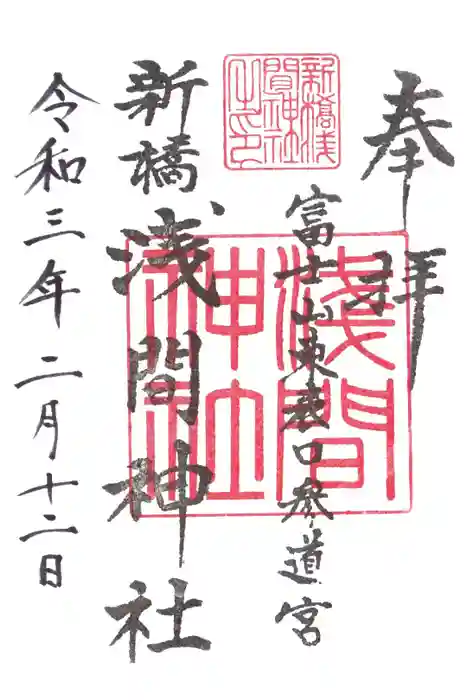 奉拝
富士山東表口参道宮
新橋浅間神社
令和三年二月十二日
新橋浅間神社之印
淺間神社